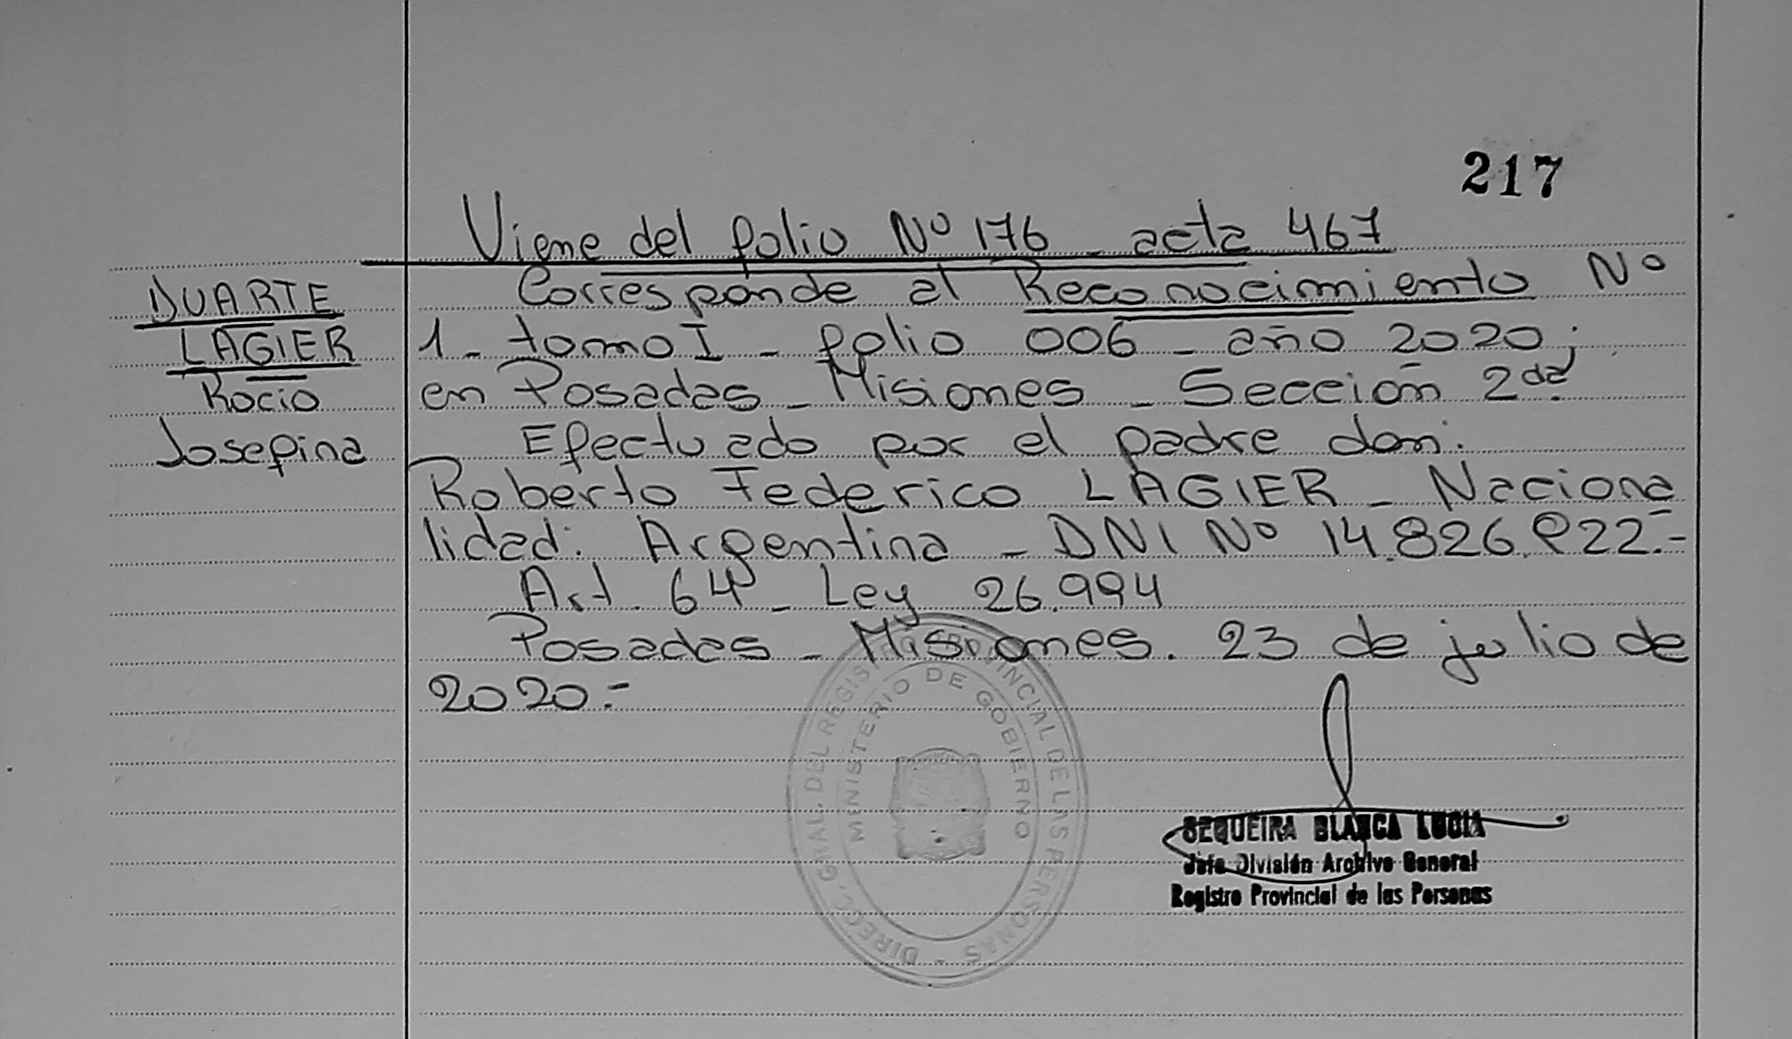 217
Viene del folio Nº 176 - acta 467
DUARTE
LAGIER
Rocio
Josefina
Corresponde al Reconocimiento Nº
1 - tomo I - folio 006 - año 2020;
en Posadas - Misiones - Sección 2da
Efectuado por el padre don:
Roberto Federico LAGIER - Naciona
lidad: Argentina - DNI Nº 14.826.922.-
Art. 64 - Ley 26.994
Posadas - Misiones. 23 de julio de
2020.-
DIRECC. GRAL. DEL REGISTRO PROVINCIAL DE LAS PERSONAS -
MINISTERIO DE GOBIERNO
SEQUEIRA BLANCA LUCIA
Jefe División Archivo General
Registro Provincial de las Personas